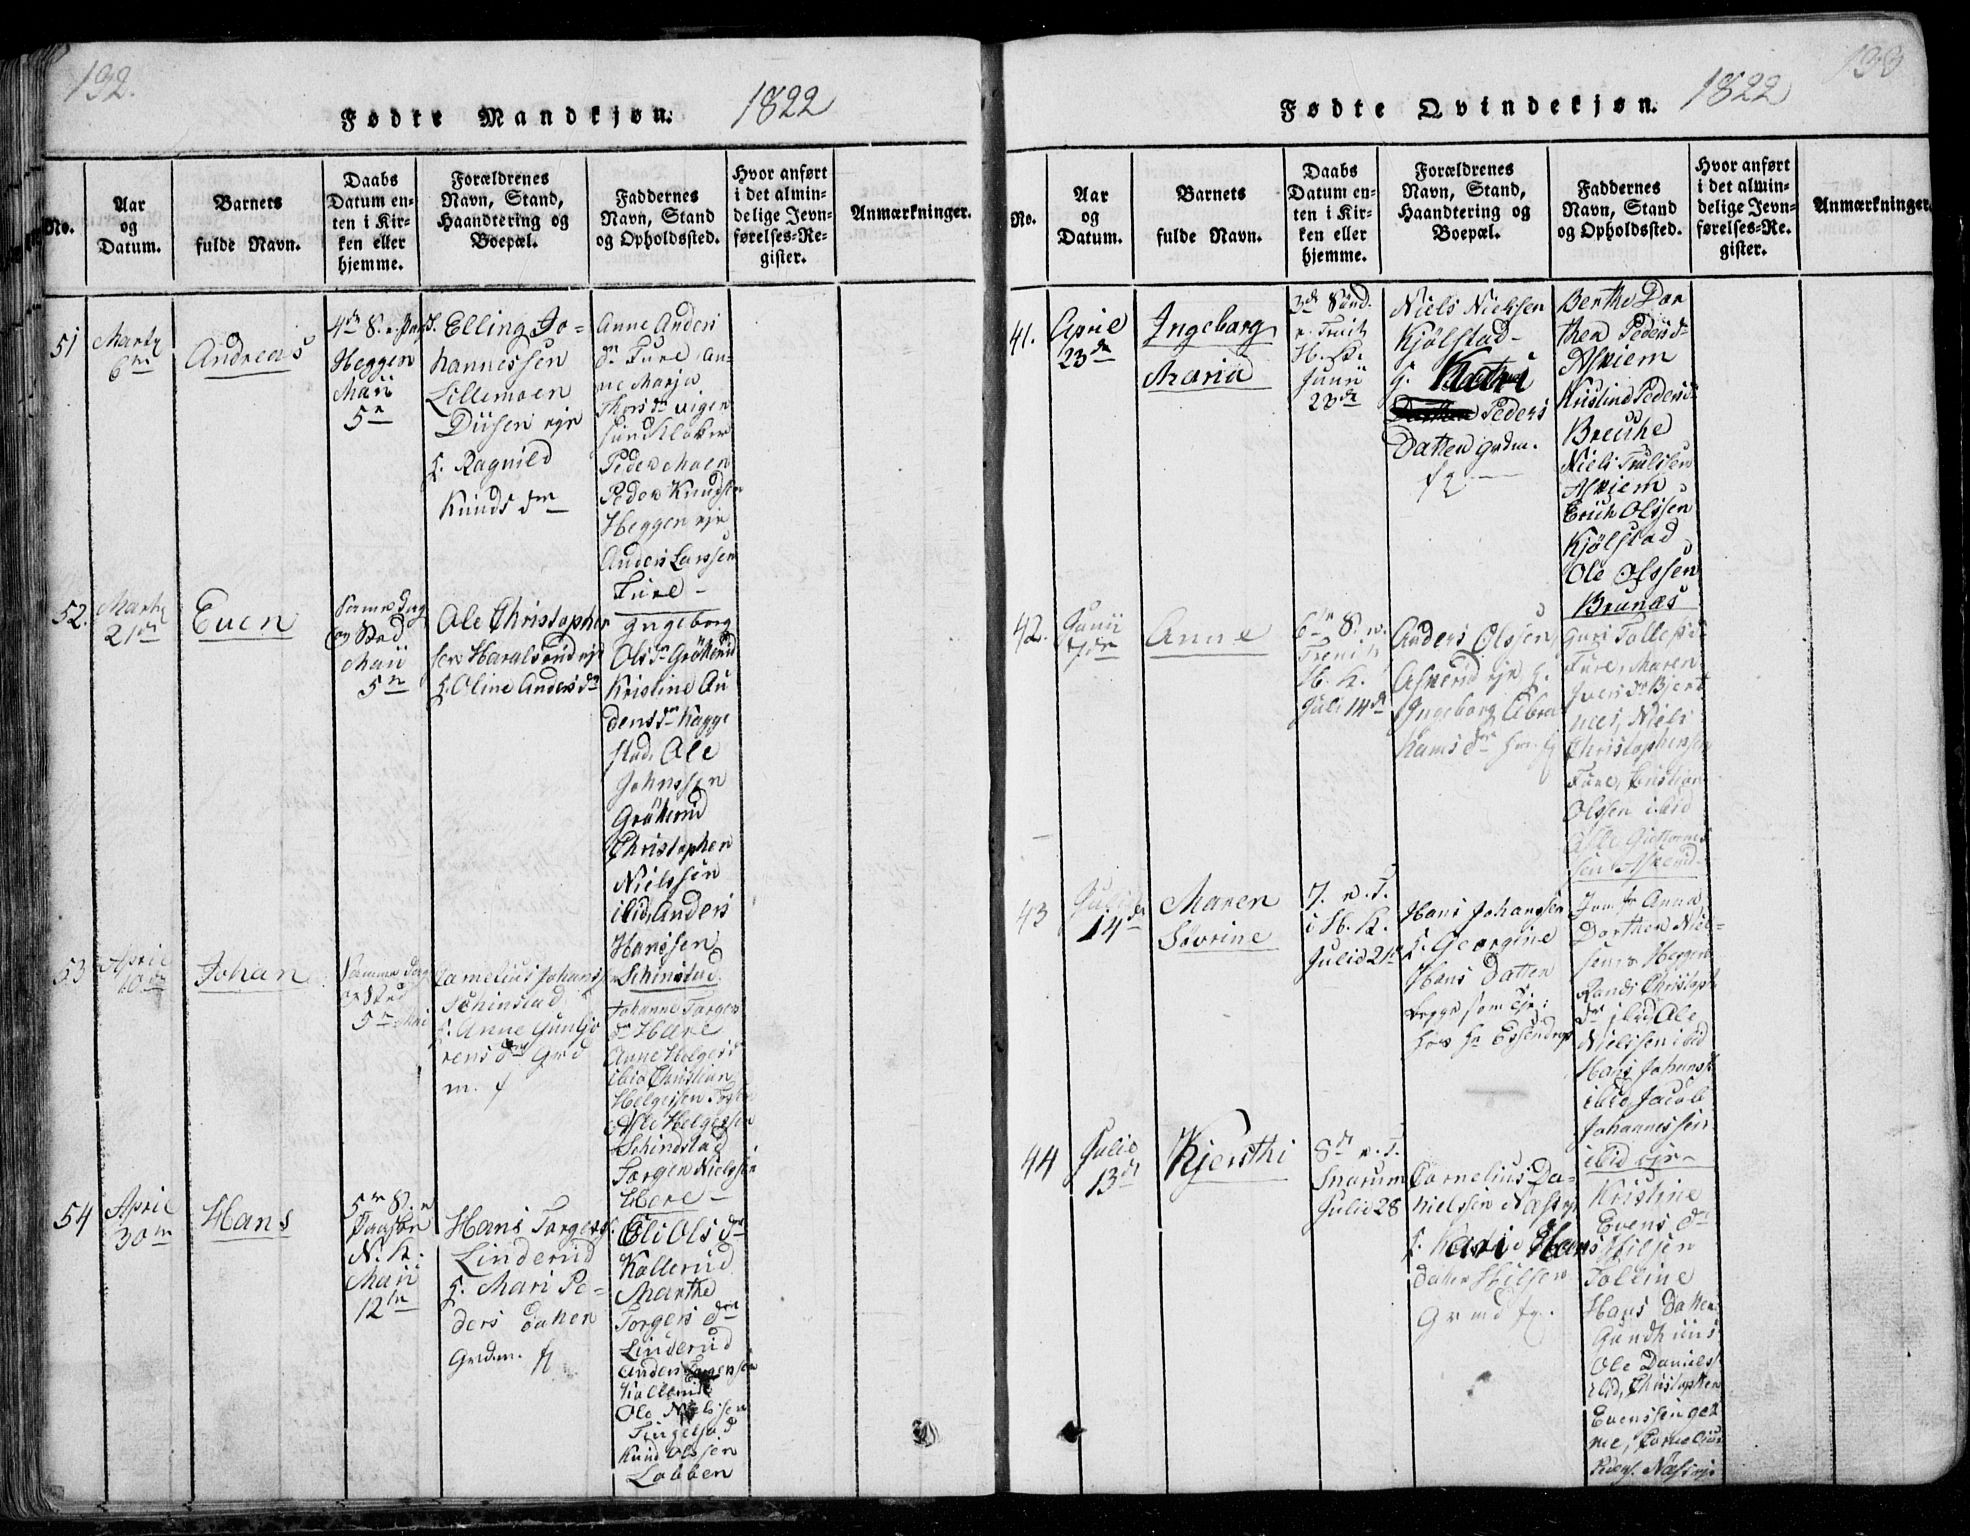 192.
Fødte Mandkjøn. 1822
No.
Aar
og
Datum.
Barnets
fulde Navn.
Daabs
Datum en-
ten i Kir-
ken eller
hjemme.
Forældrenes
Navn, Stand,
Haandtering og
Boepæl.
Faddernes
Navn, Stand
og Opholdssted.
Hvor anført
i det almin-
delige Jevn-
førelses-Re-
gister.
Anmærkninger.
51
Marty
6te
Andreas
4de S. e. Pasch.
Heggen
Maii
5te
Elling Jo-
hannessen
Lillemoen
Diisen eje
h. Ragnild
Knuds dtr
Anne Anders
dr Fure An-
ne Marja
Thorsdr Vigersund
Peder Moen
Peder Knudsen
Heggen eje
Anders Larssen
Fure
52.
Marty
21de
Even
Samme Dag
og Stad
Maii
5te
Ole Christopher
sen Haralsrud eje
h. Oline Andersdr
Ingeborg
Olsdr Gröterud
Kristine Au
densdr Kagge
stad, Ole
Johnssen
Gröterud
Christopher
Nielssen
ibid, Anders
Hanssen
Schinstad
53
April
10de
Johan
Samme Dag
og Stad
5te Mai
Cornelius Johans
Schinstad
h. Anne Gunbjo
rens dtr Grd
m. f
Johanne Torgers
dr Hære
Anne Helgesd
ibid Christian
Helgessen
Asle Helgessen
Schinstad
Torgen Nielssen
Hære
54
April
30te
Hans
5te S. e
Paaske
N. K.
Maii
12te
Hans Torgers
Linderud
h. Mari Pe-
ders Datter
Grdm. f
Eli Olsdr
Kollerud
Marthe
Torgers dtr
Linderud
Anders Torgersen
Kollerud
Ole Nielssen
Tingelstad
Knud Olssen
Lobben
193
Fødte Qvindekjøn. 1822
No.
Aar
og
Datum.
Barnets
fulde Navn.
Daabs
Datum en-
ten i Kir-
ken eller
hjemme.
Forældrenes
Navn, Stand,
Haandtering og
Boepæl.
Faddernes
Navn, Stand
og Opholdssted.
Hvor anført
i det almin-
delige Jevn-
førelses-Re-
gister.
Anmærkninger.
41.
April
23de
Ingeborg
Maria
3de Sønd.
e. Trinit
H. K.
Junii
23de
Niels Nielsen
Kjölstad
h. Kari
Peders
Datter grdm.
Berthe Dor
thea Pedersd
Askiem
Kristine Pedersd
Breche
Niels Trulssen
Askiem
Erich Olssen
Kjölstad
Ole Olssen
Brunæs
42.
Junii
7de
Anne
6te S. e.
Trinit
H. K.
Juli 14de
Anders Olssen
Askerud eje h.
Ingeborg Abra
hams dtr
Guri Tollefsd
Fure, Maren
Ivers dr Bjert
næs, Niels
Christophersen
Fure, Christian
Olssen ibid
Asle Guttorms
sen Askerud
43
Julii
14de
Maren
Sövrine
7. e. T.
i H. K.
Julio 21de
Hans Johanssen
h. Georgine
Hans Datter
begge som tje:
hos Hr Essendrop
Jomfr Anna
Dorthea Niel-
sen Heggen
Randi Christoph
dr ibid, Ole
Nielssen ibid
Hans Johanss
ibid, Jacob
Johannessen
ibid eje
44
Julio
13de
Kjersthi
8de e. T.
Snarum
Julio 28
Cornelius Da-
nielssen Næs eje
h. Kari Hans
datter Hilsen
Grmd
Kristine
Evens dtr
Hilsen
Tolline
Hans Datter
Gundhuus
Ole Daniels
ibid, Christopher
Evenssen
Cornelius
Næs eje